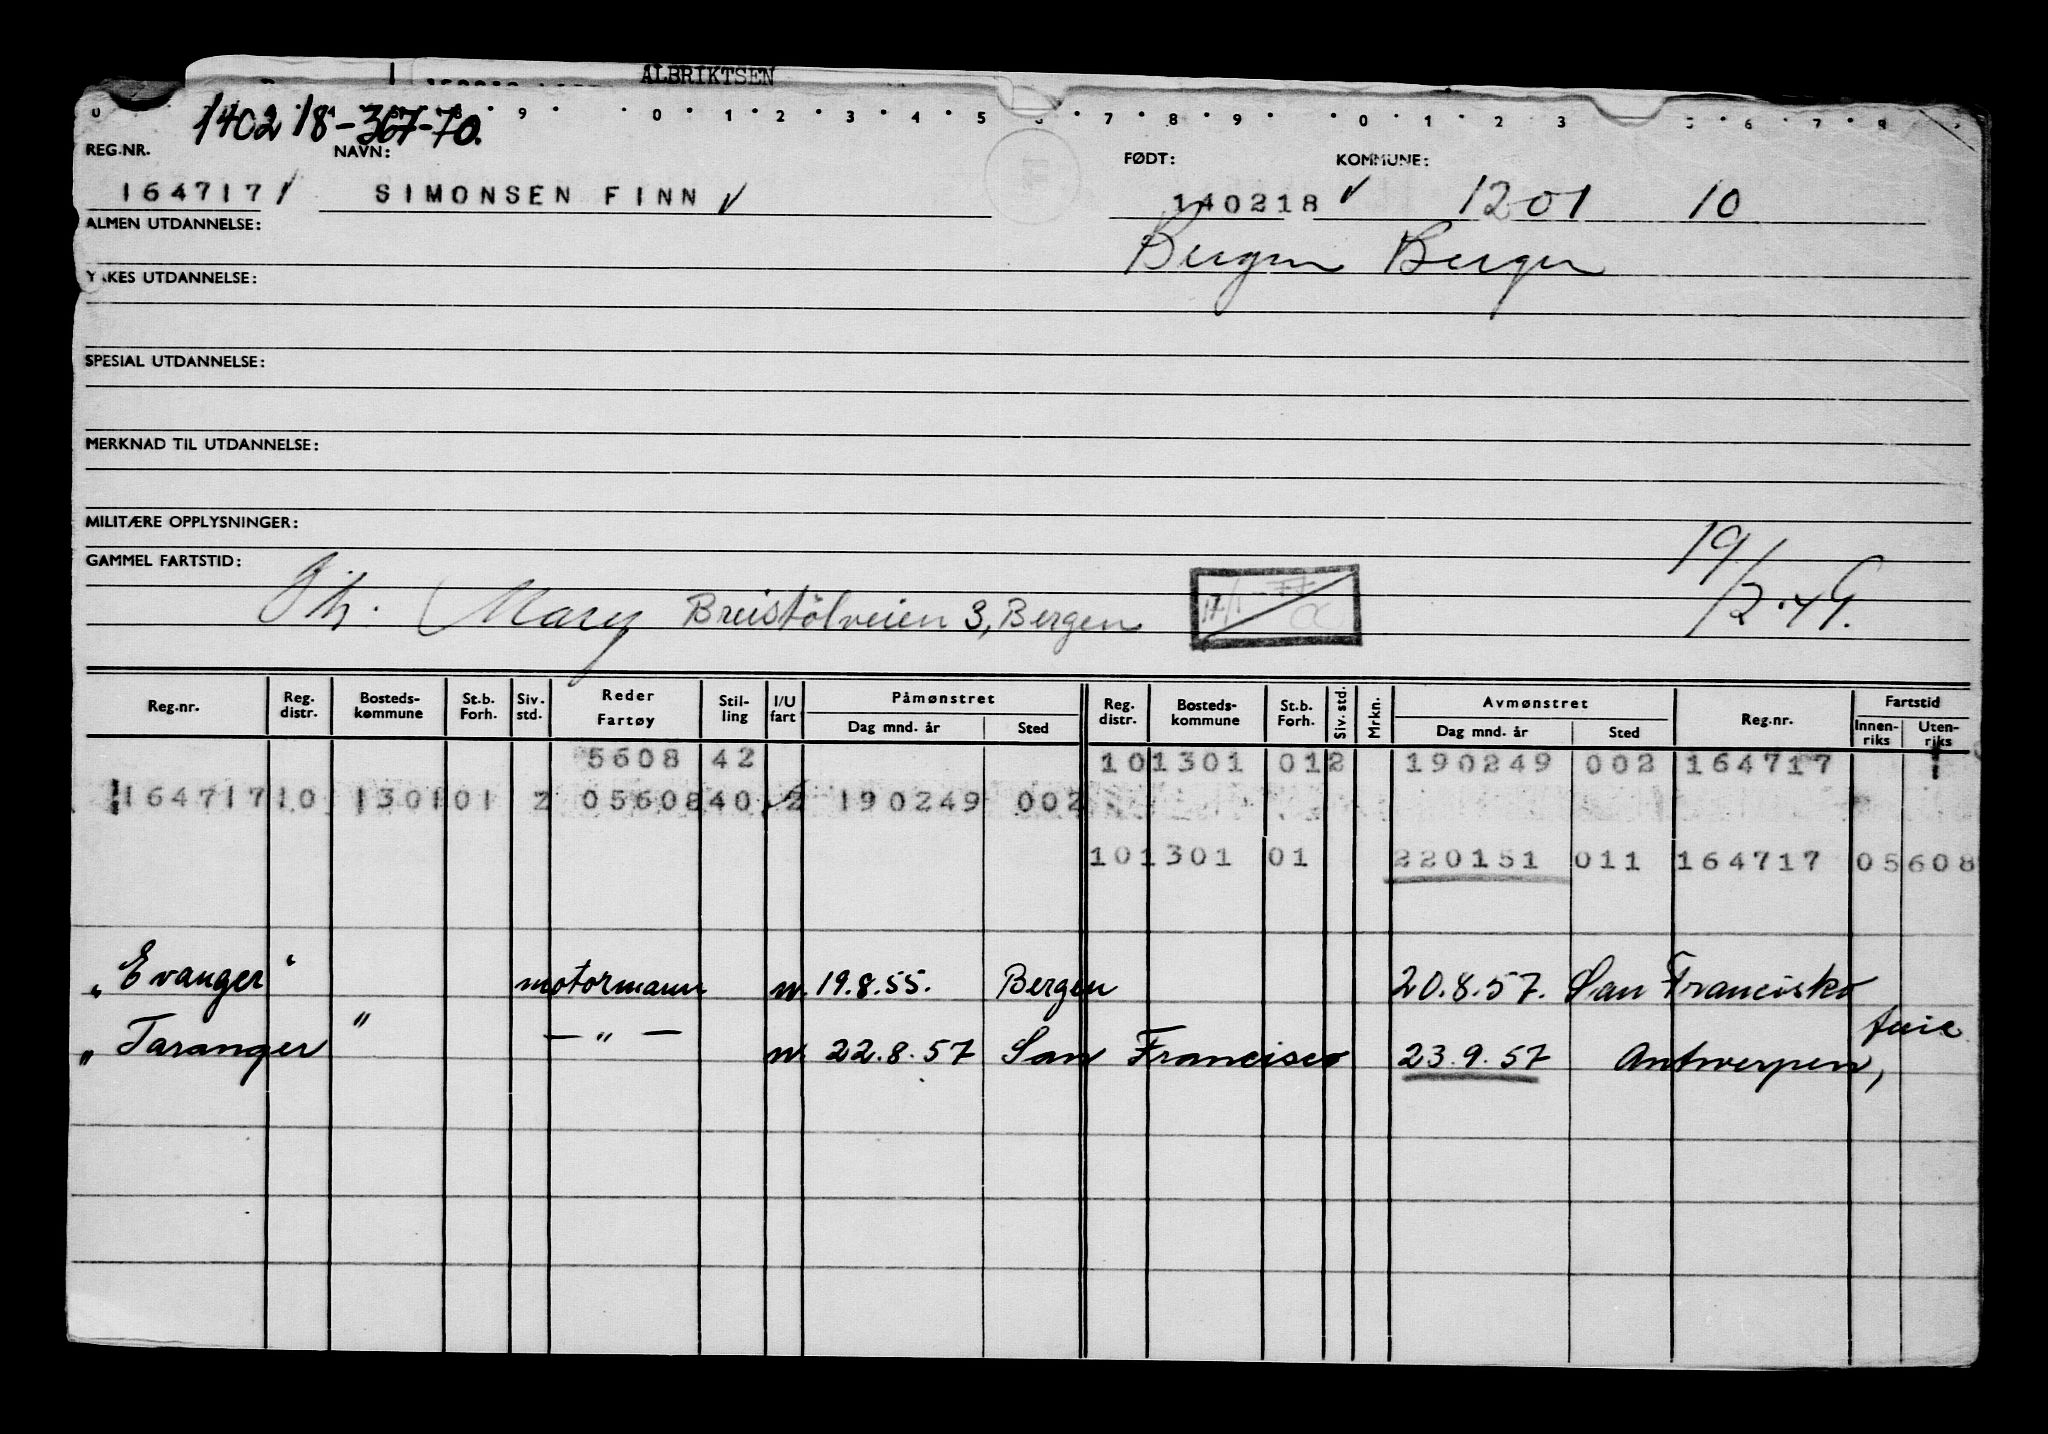 ALBRIKTSEN
140218-367-70.
9 0 1 2 3 4 5 7 8 9 0 1 2 3 5 6 7 8
REG.NR. NAVN: FØDT: KOMMUNE:
164717 SIMONSEN FINN 140218 1201 10
ALMEN UTDANNELSE: Bergen Bergen
YRKES UTDANNELSE:
SPESIAL UTDANNELSE:
MERKNAD TIL UTDANNELSE:
MILITÆRE OPPLYSNINGER:
GAMMEL FARTSTID: 19/2.49.
Mary Breistölveien 3, Bergen 17/1-77
Reg.nr. Reg. distr. Bosteds-kommune St.b. Forh. Siv. std. Reder Fartøy Stil-ling I/U fart Påmønstret Dag mnd. år Sted Reg. distr. Bosteds-kommune St.b. Forh. Siv. std. Mrkn. Avmønstret Dag mnd. år Sted Reg.nr. Fartstid Innen-riks Uten-riks
5608 42 10 1301 012 190249 002 164717 1
164717 10 1301 01 2 05608 40 2 190249 002
10 1301 01 220151 011 164717 05608
"Evanger" motormann 19.8.55. Bergen 20.8.57. San Francisko
"Taranger" — " — 22.8.57 San Francisco 23.9.57 Antwerpen,